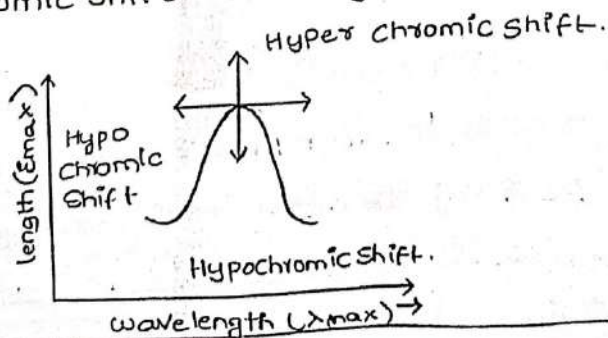 omic shift
Hyper chromic shift.
length (Emax)
Hypo
chromic
shift
Hypochromic shift.
wavelength (λmax) →